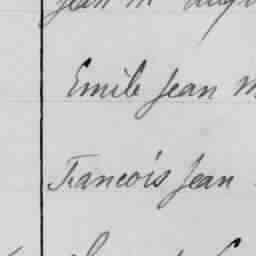 Jean M
Emile Jean M
Francois Jean